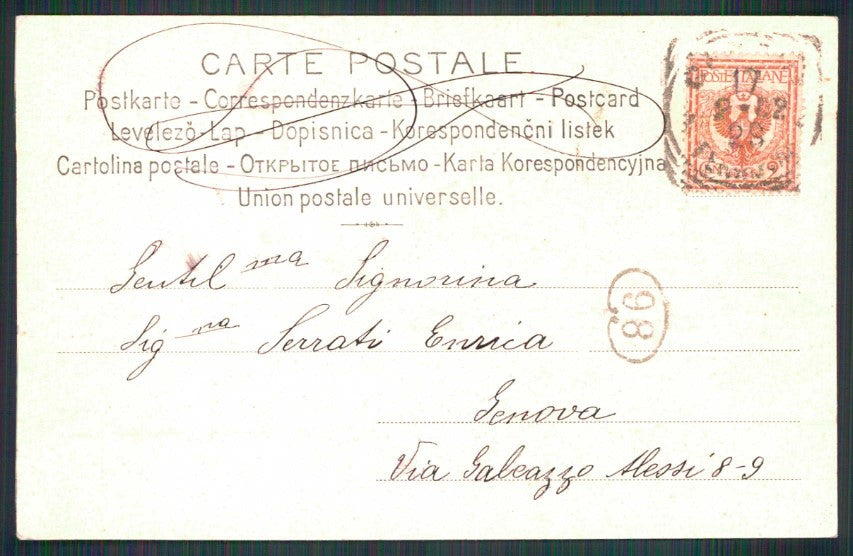 CARTE POSTALE
Postkarte - Correspondenzkarte - Briefkaart - Postcard
Levelező-Lap - Dopisnica - Korespondenčni listek
Cartolina postale - Открытое письмо - Karta Korespondencyjna
Union postale universelle.
POSTE ITALIANE
2
Gentil ma Signorina
Sig na Serrati Enrica
98
Genova
Via Galeazzo Alessi 8-9